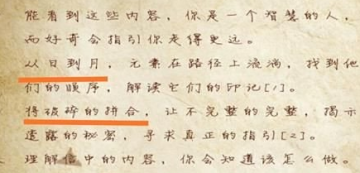 能看到这些内容，你是一个智慧的人，
而好奇会指引你走得更远。
从日到月，元素在路径上流淌，找到他
们的顺序，解读它们的印记[1]。
将破碎的拼合，让不完整的完整，揭示
遗露的秘密，寻求真正的指引[2]。
理解信中的内容，你会知道该怎么做。